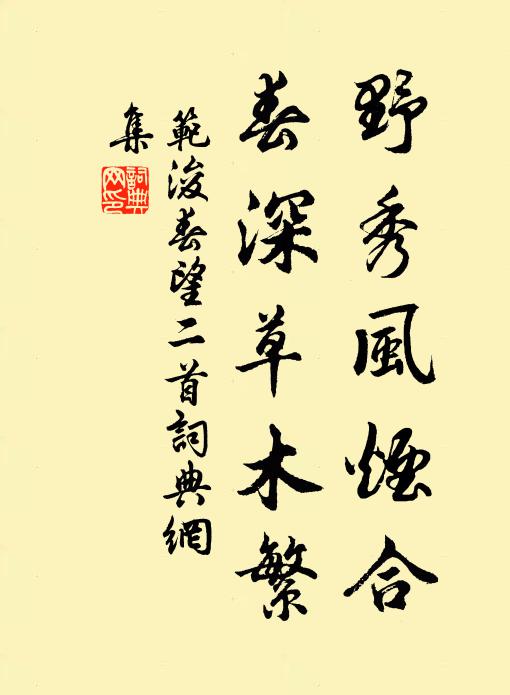 野秀風煙合
春深草木繁
範浚春望二首詞典網
集
詞典
网印